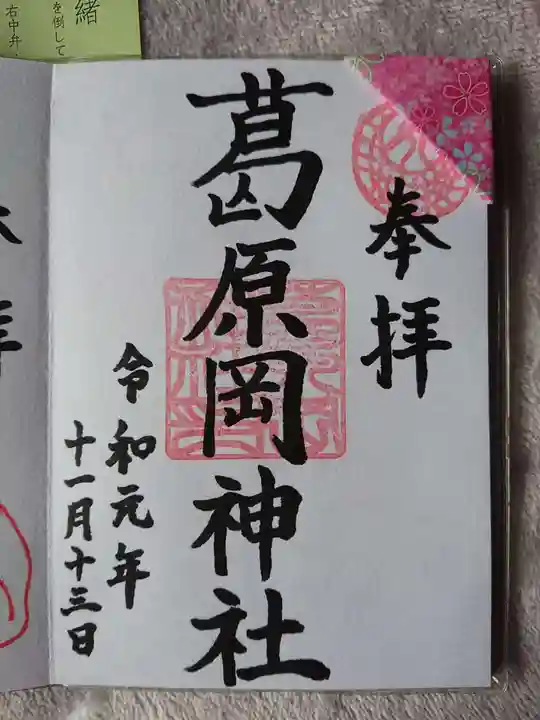 奉拝
葛原岡神社
令和元年
十一月十三日
緒
を倒して
右中弁